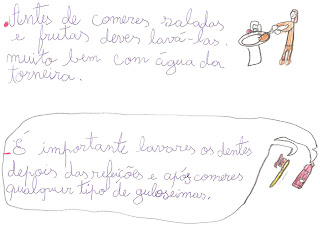 .Antes de comeres saladas
e frutas deves lavá-las
muito bem com água da
torneira.
.É importante lavares os dentes
depois das refeições e após comeres
qualquer tipo de guloseimas.